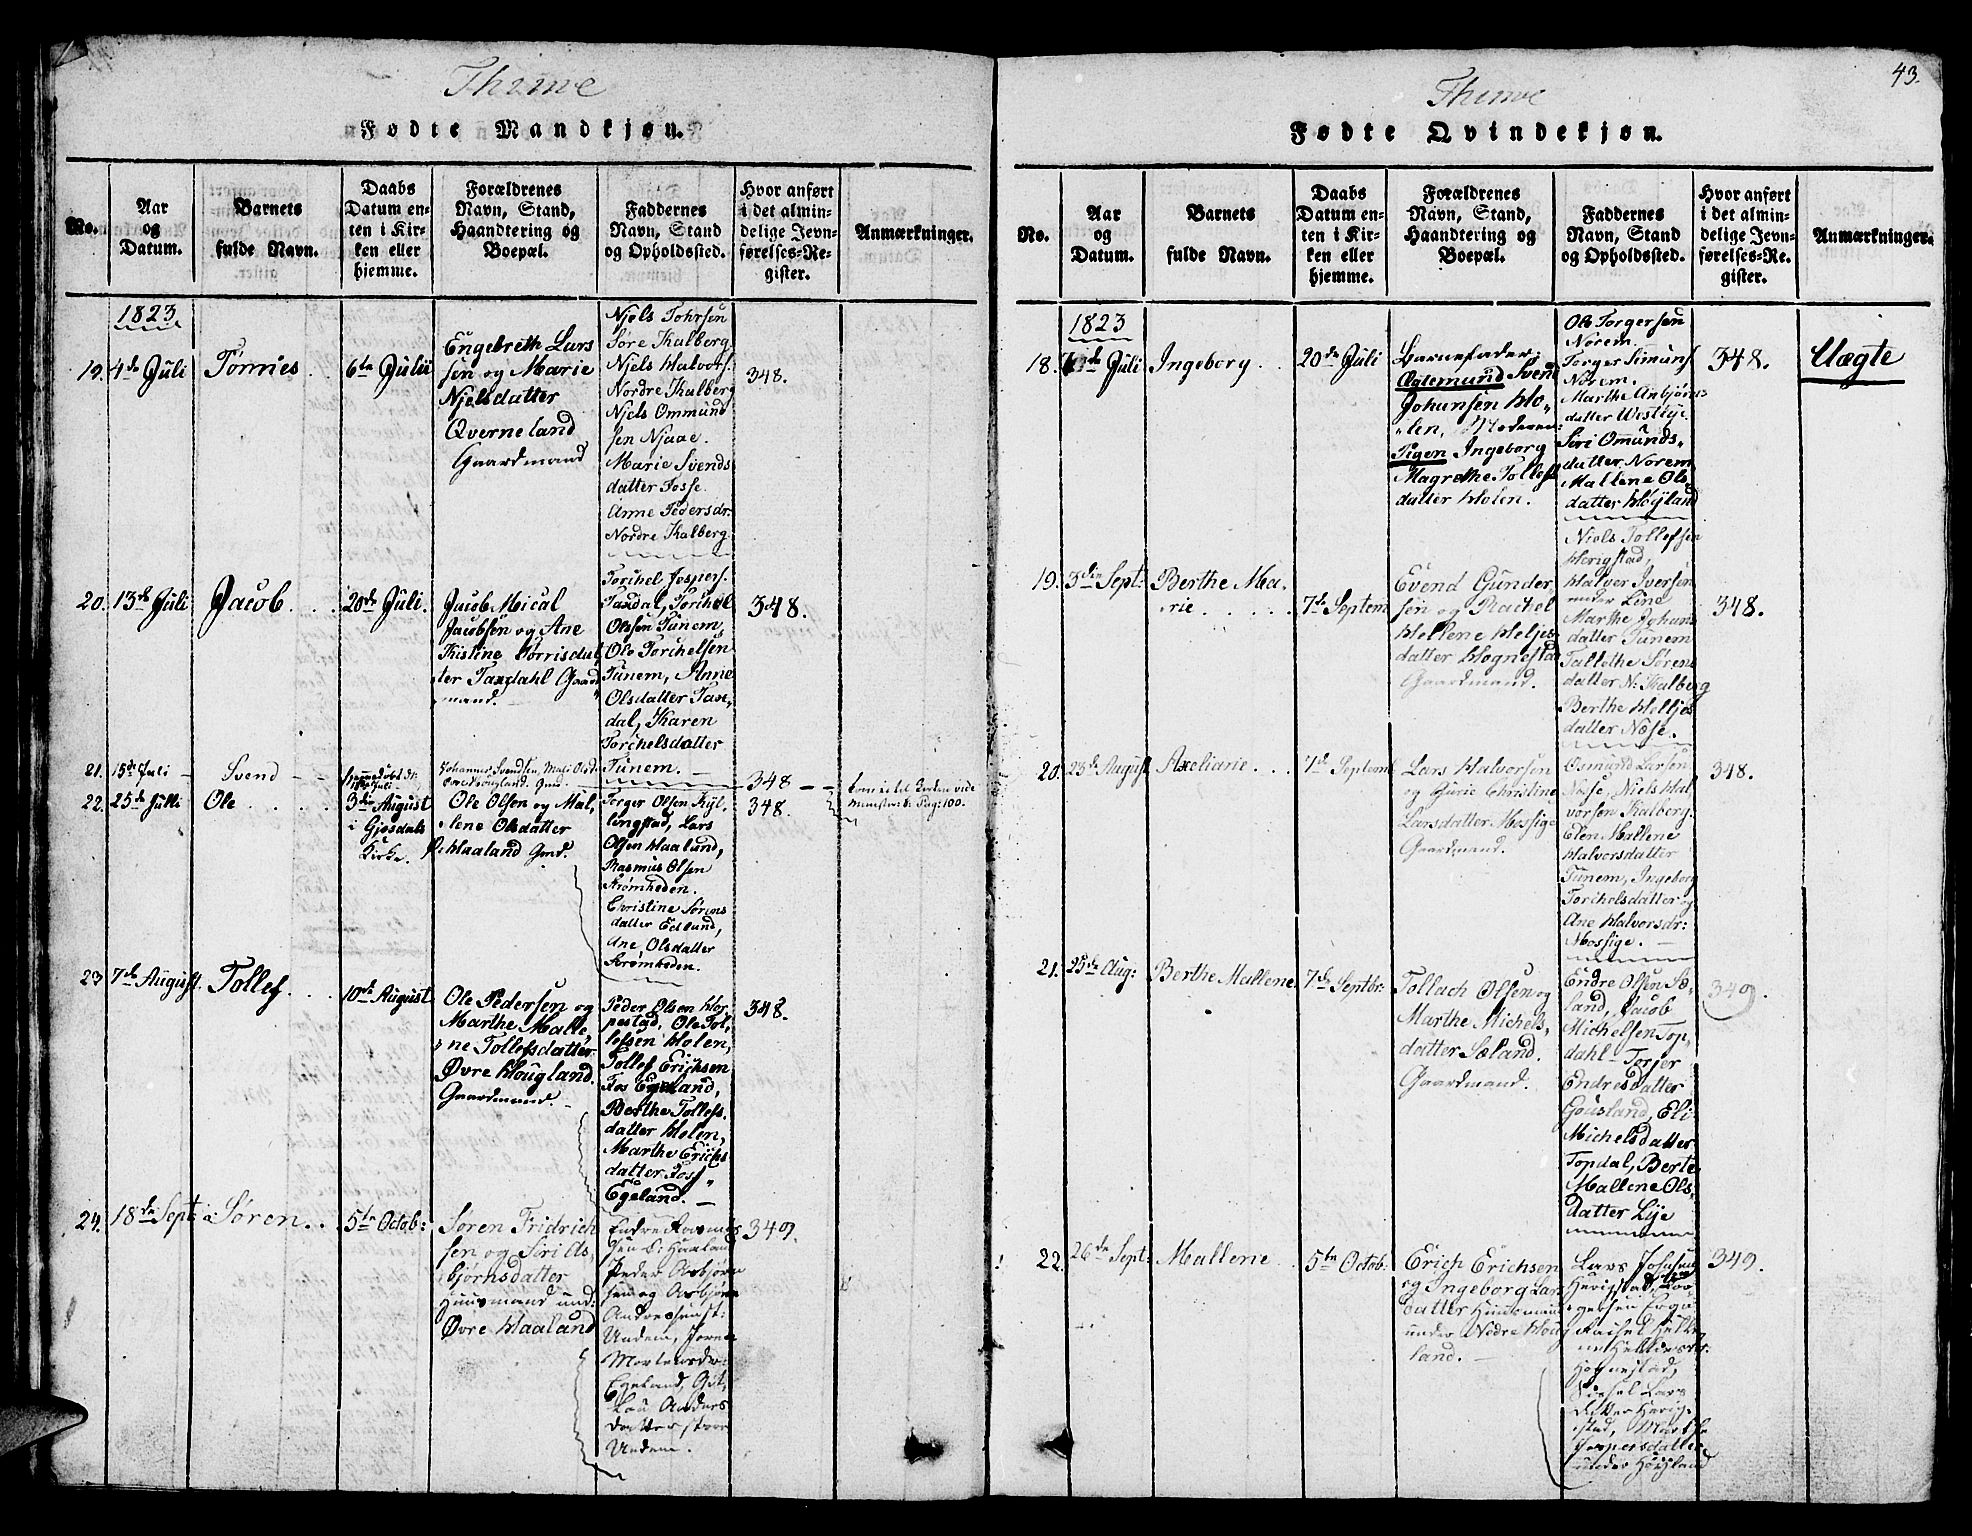 Thime
Fødte Mandkjøn.
No.
Aar
og
Datum.
Barnets
fulde Navn.
Daabs
Datum en-
ten i Kir-
ken eller
hjemme.
Forældrenes
Navn, Stand,
Haandtering og
Boepæl.
Faddernes
Navn, Stand
og Opholdssted.
Hvor anført
i det almin-
delige Jevn-
førelses-Re-
gister.
Anmærkninger.
1823
19. 4de Juli
Tørries
6te Julii
Engebreth Lars
sen og Marie
Njelsdatter
Qverneland
Gaardmand
Njels Tohrsen
Søre Kalberg
Njels Halvors.
Nordre Kalberg
Njels Ommund
sen Njaae.
Marie Svends
datter Fosse.
Anne Pedersdr.
Nordre Kalberg
348.
20. 13de Juli
Jacob
20de Juli.
Jacob Mical
Jacobsen og Ane
Kistine Tørrisdat
ter Taxdahl Gaard
mand.
Torchel Jospers.
Taxdal, Torchel
Olssen Tunem,
Ole Torchelsen
Tunem, Anne
Olsdatter Tax,
dal, Karen
Torchelsdatter
Tunem.
348.
21. 15de Juli
Svend
348
22. 25de Julii
Ole
3die August
i Gjesdals
Kirke.
Ole Olsen og Mal,
lene Olsdatter
Haaland Gmd.
Torger Olsen Kyl,
lingstad, Lars
Olsen Haaland,
Rasmus Olsen
Strømheden.
Christine Sørens
datter Edland,
Ane Olsdatter
Strømheden.
348.
Minister b: Pag: 100.
23 7de August
Tollef
10de August
Ole Pedersen og
Marthe Malle
ne Tollefsdatter
Øvre Hougland.
Gaardmand.
Peder Olsen Hor
pestad, Ole Tol,
lefsen Holen,
Tollef Erichsen
Fos Egeland,
Berthe Tollefs.
datter Holen,
Marthe Erichs
datter Foss
Egeland.
348.
24. 18de Sept
Søren
5te Octob:
Søren Fridrich
sen og Siri As,
bjørnsdatter
Huusmand und:
Øvre Haaland
Endre Rasmus
sen S: Haaland
Peder Asbjørn
sen og Asbjørn
Andreasen St:
Undem,
Mortensdr.
Egeland,
Anders
datter store
Undem.
349.
43.
Thime
Fødte Qvindekjøn.
No.
Aar
og
Datum.
Barnets
fulde Navn.
Daabs
Datum en-
ten i Kir-
ken eller
hjemme.
Forældrenes
Navn, Stand,
Haandtering og
Boepæl.
Faddernes
Navn, Stand
og Opholdssted.
Hvor anført
i det almin-
delige Jevn-
førelses-Re-
gister.
Anmærkninger.
1823
18. Juli
Ingeborg
20de Juli
Barnefader,
Svend
Johansen Ho,
len, Moderen:
Pigen Ingeborg
Magrethe Tollefs
datter Holen.
Ole Torgersen
Norem.
Torger Simuns.
Norem.
Marthe Anbjørns
datter Westlye.
Siri Omunds,
datter Norem
Mallene Ols
datter Høyland
348.
Uægte
19. 3die Sept:
Berthe Ma,
rie
7de Septem
Evend Gunder
sen og Rachel
Hellene Heljes
datter Hognestad
Gaardmand.
Niels Tollefsen
Herigstad,
Halver Iversen
under Line
Marthe Johans
datter Tunem
Tallethe Sørens
datter N: Kalberg
Berthe Heljes
datter Næse.
348.
20. 23de August
Axeliane
7de Septemb
Lars Halvorsen
og Gurie Christine
Larsdatter Mossige
Gaardmand.
Osmund Larsen
Næse, Niels Hal
vorsen Kalberg.
Elen Mallene
Halvorsdatter
Tunem, Ingeborg
Torchelsdatter og
Ane Halvorsdr:
Mossige.
348.
21. 25de Aug:
Berthe Mallene
7de Septbr:
Tollach Olsen og
Marthe Michels,
datter Sæland.
Gaardmand.
Endre Olsen Sæ,
land, Jacob
Michelsen Top,
dahl Torjer
Endresdatter
Gousland, Eli
Michelsdatter
Topdal, Berte
Mallene Ols,
datter Lye
349.
22. 26de Sept:
Mallene
5te Octob.
Erich Erichsen
og Ingeborg Lars
datter Huusmand
under Nedre Houg
land.
Lars Johnsen
Herigstad,
gersen Erga
Rachel Helle
ne Heljesdtr:
Hognestad,
Lars
datter Herig,
stad, Marthe
Jespersdatter
under Høyland
349.